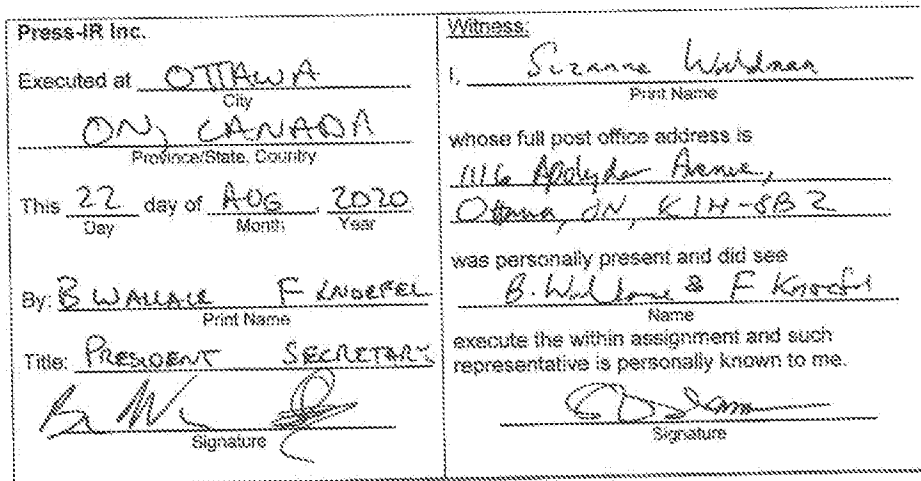 Press-IR Inc.
Executed at OTTAWA
City
ON, CANADA
Province/State, Country
This 22 day of AUG, 2020
Day Month Year
By: B WALLACE F KNOEFEL
Print Name
Title: PRESIDENT SECRETARY
Signature
Witness:
I, Suzanne
Print Name
whose full post office address is
1116 Avenue,
Ottawa, ON, K1H-8B2
was personally present and did see
B. Wallace & F Knoefel
Name
execute the within assignment and such
representative is personally known to me.
Signature